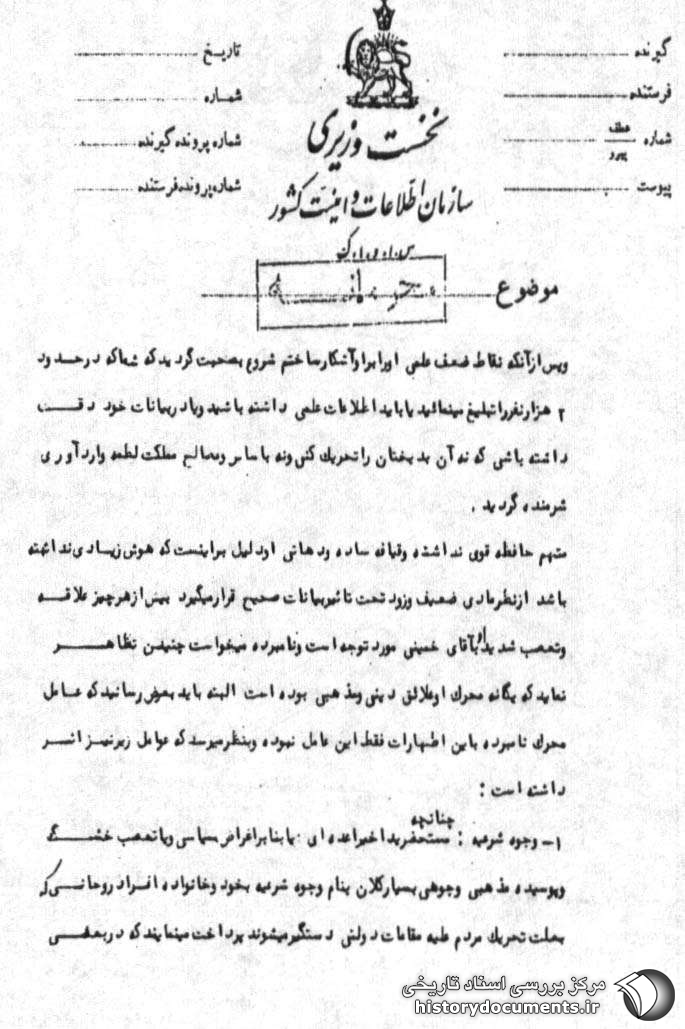 گیرنده
فرستنده
شماره عطف پیرو
پیوست
تاریخ
شماره
شماره پرونده گیرنده
شماره پرونده فرستنده
نخست وزیری
سازمان اطلاعات و امنیت کشور
س.ا.و.ا.ک
موضوع
محرمانه
وپس ازآنکه نقاط ضعف علمی اورابراوآشکارساختم شروع بصحبت گردیدکه شماکه درحدود
۲ هزارنفرراتبلیغ مینمائید یابایداطلاعات علمی داشته باشید ویادربیانات خود دقت
داشته باشی که نه آن بدبختان راتحریک کنی ونه باساس ومصالح مملکت لطمه واردآوری
شرمنده گردید .
متهم حافظه قوی نداشته وقیافه ساده ودهاتی اودلیل براینست که هوش زیادی نداشته
باشد ازنظرمادی ضعیف وزود تحت تاثیربیانات صحیح قرارمیگیرد بیش ازهرچیز علاقه
وتعصب شدید او بآقای خمینی مورد توجه است ونامبرده میخواست چنین تظاهر
نماید که یگانه محرک اوعلائق دینی ومذهبی بوده است البته باید بعرض رسانید که عامل
محرک نامبرده باین اظهارات فقط این عامل نبوده وبنظرمیرسد که عوامل زیرنیز اثر
داشته است :
۱- وجوه شرعیه : چنانچه مستحضرید اخیراعده ای بنا براغراض سیاسی ویاتعصب خشک
وپوسیده مذهبی وجوهی بسیارکلان بنام وجوه شرعیه بخود وخانواده افراد روحانی که
بعلت تحریک مردم علیه مقامات دولتی دستگیرمیشوند پرداخت مینمایند که دربعضی
مرکز بررسی اسناد تاریخی
historydocuments.ir